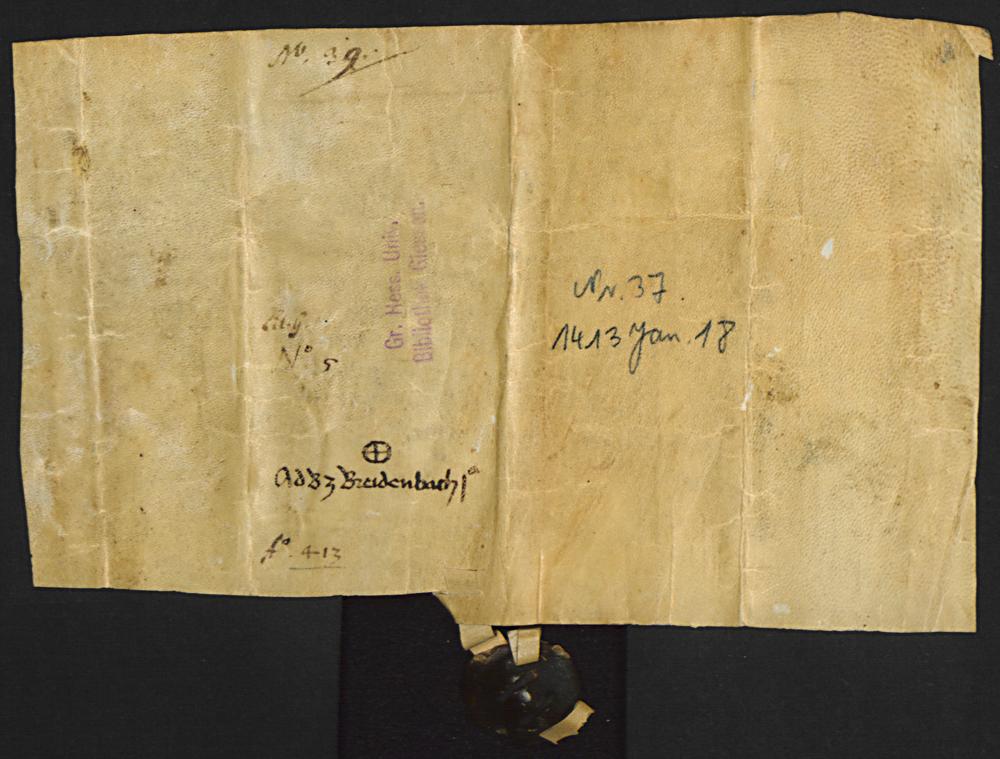 No. 39.
Gr. Hess. Univ.
Bibliothek Giessen.
Nr. 37.
1413 Jan. 18
Lit. G.
No 5
Breidenbach
fo. 413